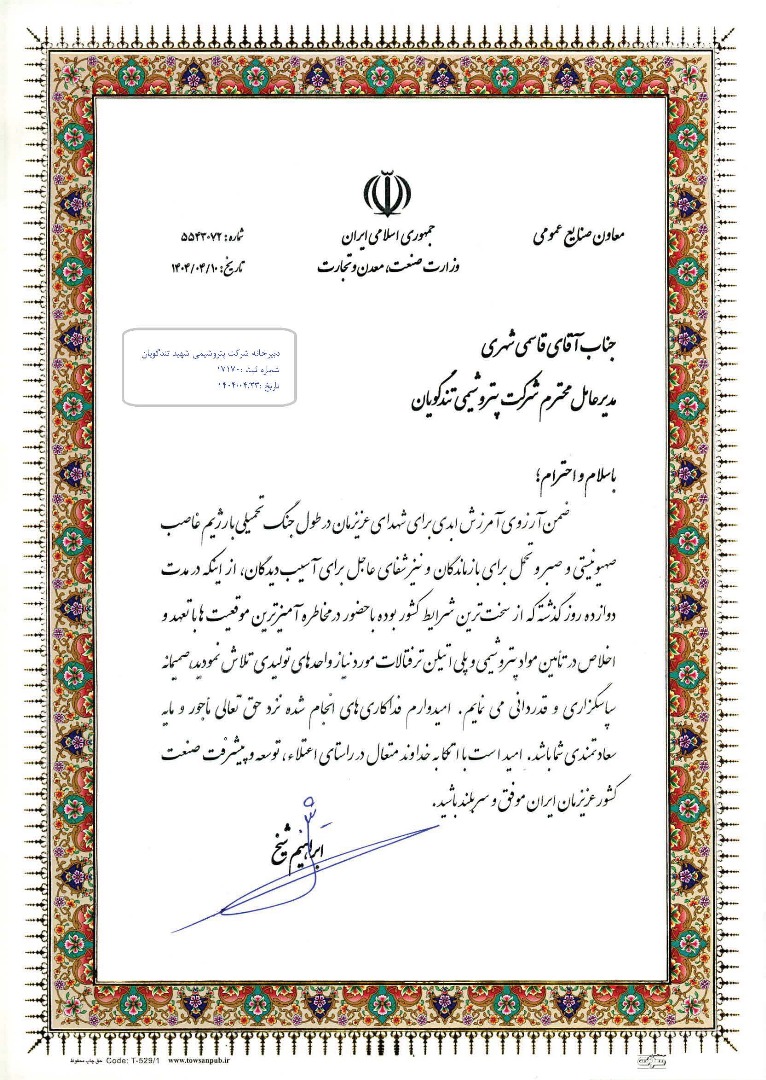 جمهوری اسلامی ایران
وزارت صنعت، معدن و تجارت
معاون صنایع عمومی
شماره: ۵۵۴۳۰۷۲
تاریخ: ۱۴۰۴/۰۴/۱۰
دبیرخانه شرکت پتروشیمی شهید تندگویان
شماره ثبت :۷۱۷۰
تاریخ :۱۴۰۴۰۴.۲۳
جناب آقای قاسمی شهری
مدیرعامل محترم شرکت پتروشیمی تندگویان
باسلام و احترام؛
ضمن آرزوی آمرزش ابدی برای شهدای عزیزمان در طول جنگ تحمیلی با رژیم غاصب
صهیونیستی و صبر و تحمل برای بازماندگان و نیز شفای عاجل برای آسیب دیدگان، از اینکه در مدت
دوازده روز گذشته که از سخت‌ترین شرایط کشور بوده با حضور در مخاطره آمیزترین موقعیت ها با تعهد و
اخلاص در تأمین مواد پتروشیمی و پلی اتیلن ترفتالات مورد نیاز واحدهای تولیدی تلاش نمودید، صمیمانه
سپاسگزاری و قدردانی می نمایم. امیدوارم فداکاری‌های انجام شده نزد حق تعالی مأجور و مایه
سعادتمندی شما باشد. امید است با اتکا به خداوند متعال در راستای اعتلاء، توسعه و پیشرفت صنعت
کشور عزیزمان ایران موفق و سربلند باشید.
ابراهیم شیخ
حق چاپ محفوظ Code: T-529/1 www.towsanpub.ir